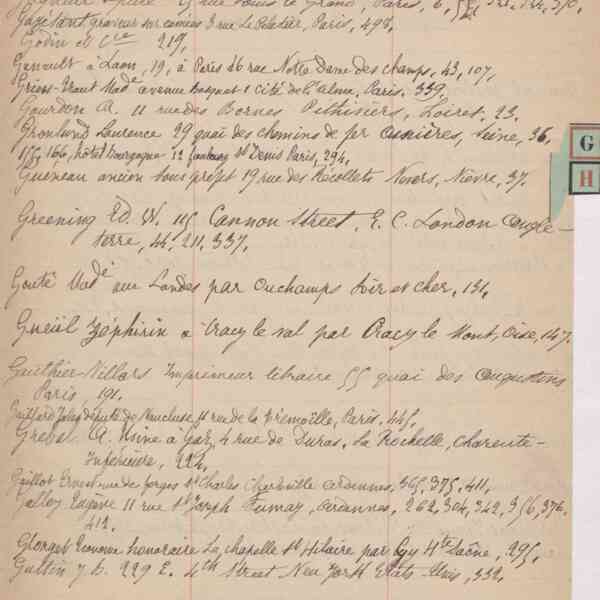 Paris, 6,
graveur sur camées 3 rue Le Peletier, Paris, 497.
Godin et Cie 219.
à Laon, 19, à Paris 26 rue Notre Dame des champs, 43, 107.
Made avenue Bosquet 1 Cité de l'alma, Paris. 339.
Gourdon A. 11 rue des Bornes Pithiviers, Loiret, 23.
Gronlund Laurence 29 quai des chemins de fer Asnières, Seine, 36.
166, hôtel Bourgogne 12 faubourg St Denis Paris, 294.
Gueneau ancien sous préfet 19 rue des Récollets Nevers, Nièvre, 37.
Greening Ed. W. 115 Cannon Street, E. C. London Angle-
terre, 44, 211, 337.
Gouté Made aux Landes par Ouchamps Loir et cher, 131.
Gueüll Zéphirin à Tracy le val par Tracy le Mont, Oise, 147.
Gauthier-Villars Imprimeur libraire 55 quai des Augustins
Paris, 191.
député de Vaucluse, 11 rue de la Trémoïlle, Paris, 445.
A. Usine à Gaz, 4 rue de Duras, La Rochelle, Charente-
Inférieure, 224.
Gaillot Ernest rue de forges St Charles Charleville ardennes, 365, 375, 411.
Galloy Eugène 11 rue St Joseph Fumay, ardennes, 262, 304, 342, 356, 376.
412.
Glorget Econome honoraire La chapelle St Hilaire par Gy Hte Saône, 295.
229 E. 4th Street New York Etats-Unis, 332.
G
H